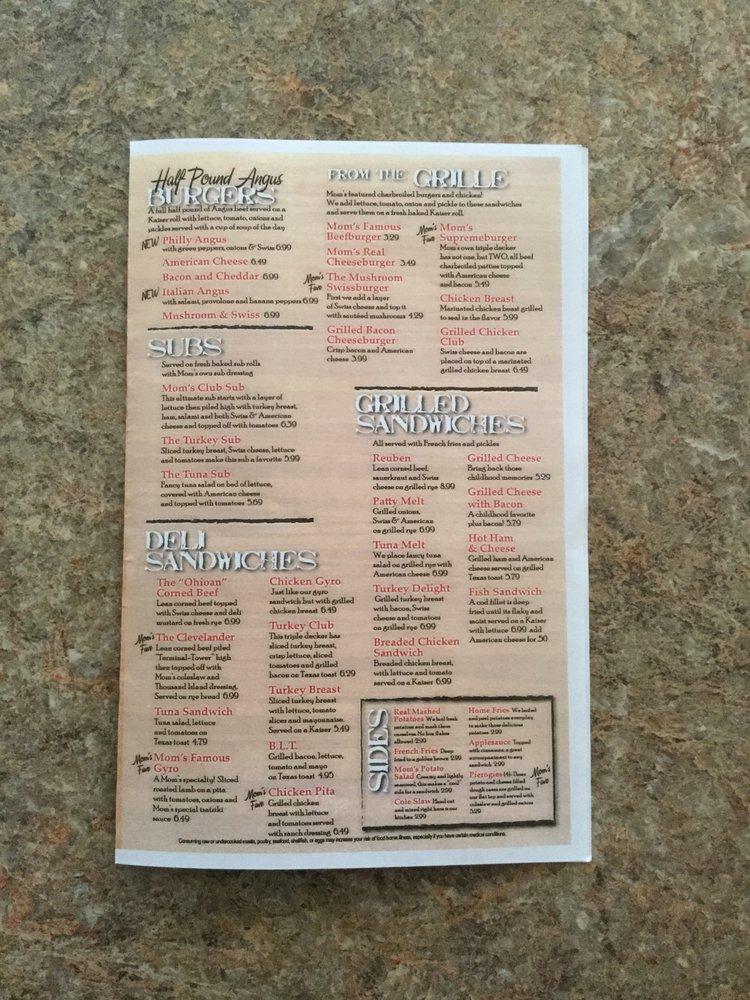 Half Pound Angus
BURGERS
A full half pound of Angus beef served on a
Kaiser roll with lettuce, tomato, onions and
pickles served with a cup of soup of the day
NEW Philly Angus
with green peppers, onions & Swiss 6.99
American Cheese 6.49
Bacon and Cheddar 6.99
NEW Italian Angus
with salami, provolone and banana peppers 6.99
Mushroom & Swiss 6.99
SUBS
Served on fresh baked sub rolls
with Mom's own sub dressing
Mom's Club Sub
This ultimate sub starts with a layer of
lettuce then piled high with turkey breast,
ham, salami and both Swiss & American
cheese and topped off with tomatoes 6.39
The Turkey Sub
Sliced turkey breast, Swiss cheese, lettuce
and tomatoes make this sub a favorite 5.99
The Tuna Sub
Fancy tuna salad on bed of lettuce,
covered with American cheese
and topped with tomatoes 5.69
DELI
SANDWICHES
The "Ohioan"
Corned Beef
Lean corned beef topped
with Swiss cheese and deli
mustard on fresh rye 6.99
Mom's Fave The Clevelander
Lean corned beef piled
"Terminal-Tower" high
then topped off with
Mom's coleslaw and
Thousand Island dressing.
Served on rye bread 6.99
Tuna Sandwich
Tuna salad, lettuce
and tomatoes on
Texas toast 4.79
Mom's Fave Mom's Famous
Gyro
A Mom's specialty! Sliced
roasted lamb on a pita
with tomatoes, onions and
Mom's special tsatziki
sauce 6.49
Chicken Gyro
Just like our gyro
sandwich but with grilled
chicken breast 6.49
Turkey Club
This triple decker has
sliced turkey breast,
crisp lettuce, sliced
tomatoes and grilled
bacon on Texas toast 6.29
Turkey Breast
Sliced turkey breast
with lettuce, tomato
slices and mayonnaise.
Served on a Kaiser 5.49
B.L.T.
Grilled bacon, lettuce,
tomato and mayo
on Texas toast 4.95
Mom's Fave Chicken Pita
Grilled chicken
breast with lettuce
and tomatoes served
with ranch dressing 6.49
FROM THE GRILLE
Mom's featured charbroiled burgers and chicken!
We add lettuce, tomato, onion and pickle to these sandwiches
and serve them on a fresh baked Kaiser roll.
Mom's Famous
Beefburger 3.29
Mom's Real
Cheeseburger 3.49
Mom's Fave The Mushroom
Swissburger
First we add a layer
of Swiss cheese and top it
with sautéed mushrooms 4.29
Grilled Bacon
Cheeseburger
Crisp bacon and American
cheese 3.99
Mom's Fave Mom's
Supremeburger
Mom's own triple decker
has not one, but TWO, all beef
charbroiled patties topped
with American cheese
and bacon 5.49
Chicken Breast
Marinated chicken breast grilled
to seal in the flavor 5.99
Grilled Chicken
Club
Swiss cheese and bacon are
placed on top of a marinated
grilled chicken breast 6.49
GRILLED
SANDWICHES
All served with French fries and pickles
Reuben
Lean corned beef,
sauerkraut and Swiss
cheese on grilled rye 8.99
Patty Melt
Grilled onions,
Swiss & American
on grilled rye 6.99
Tuna Melt
We place fancy tuna
salad on grilled rye with
American cheese 6.99
Turkey Delight
Grilled turkey breast
with bacon, Swiss
cheese and tomatoes
on grilled rye 6.99
Breaded Chicken
Sandwich
Breaded chicken breast,
with lettuce and tomato
served on a Kaiser 6.99
Grilled Cheese
Bring back those
childhood memories 5.29
Grilled Cheese
with Bacon
A childhood favorite
plus bacon! 5.79
Hot Ham
& Cheese
Grilled ham and American
cheese served on grilled
Texas toast 5.79
Fish Sandwich
A cod fillet is deep
fried until its flaky and
moist served on a Kaiser
with lettuce 6.99 add
American cheese for .50
SIDES
Real Mashed
Potatoes We boil fresh
potatoes and mash them
ourselves. No box flakes
allowed 2.99
French Fries Deep
fried to a golden brown 2.99
Mom's Potato
Salad Creamy and lightly
seasoned, this makes a "cool"
side for a sandwich 2.99
Cole Slaw Hand cut
and mixed right here in our
kitchen 2.99
Home Fries We boiled
and peel potatoes everyday
to make these delicious
potatoes 2.99
Applesauce Topped
with cinnamon, a great
accompaniment to any
sandwich 2.99
Pierogies (4) These Mom's Fave
potato and cheese filled
dough cases are grilled on
our flat top and served with
coleslaw and grilled onions
5.29
Consuming raw or undercooked meats, poultry, seafood, shellfish, or eggs may increase your risk of food borne illness, especially if you have certain medical conditions.